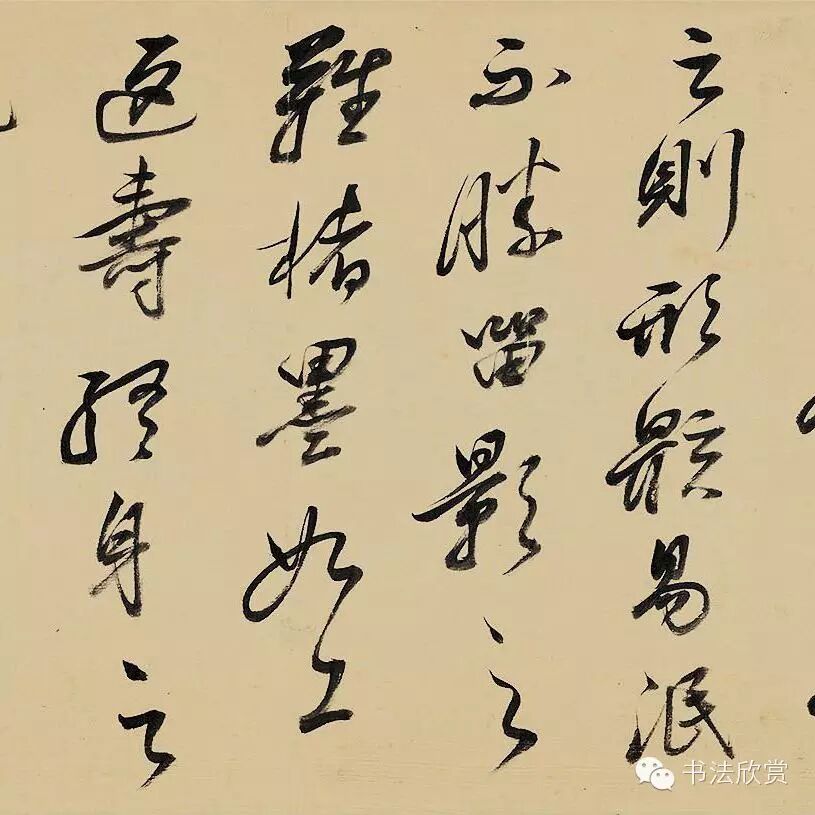 之則形骸易泯
不勝留影之
難楮墨如工
返壽終身之
书法欣赏